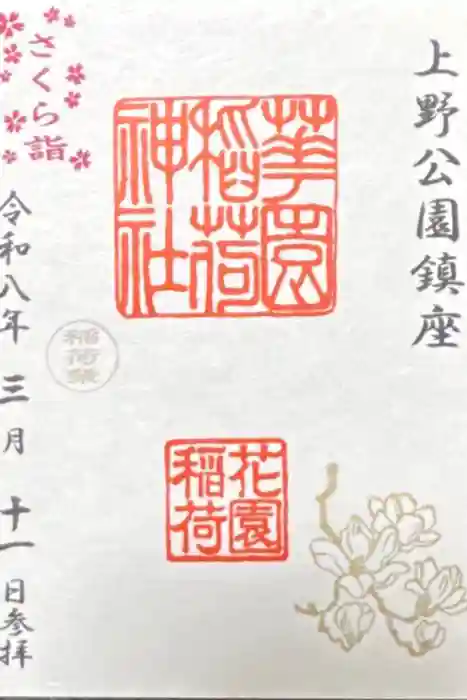 上野公園鎮座
華園
稲荷
神社
花園
稲荷
さくら詣
令和八年 三月 十一日参拝